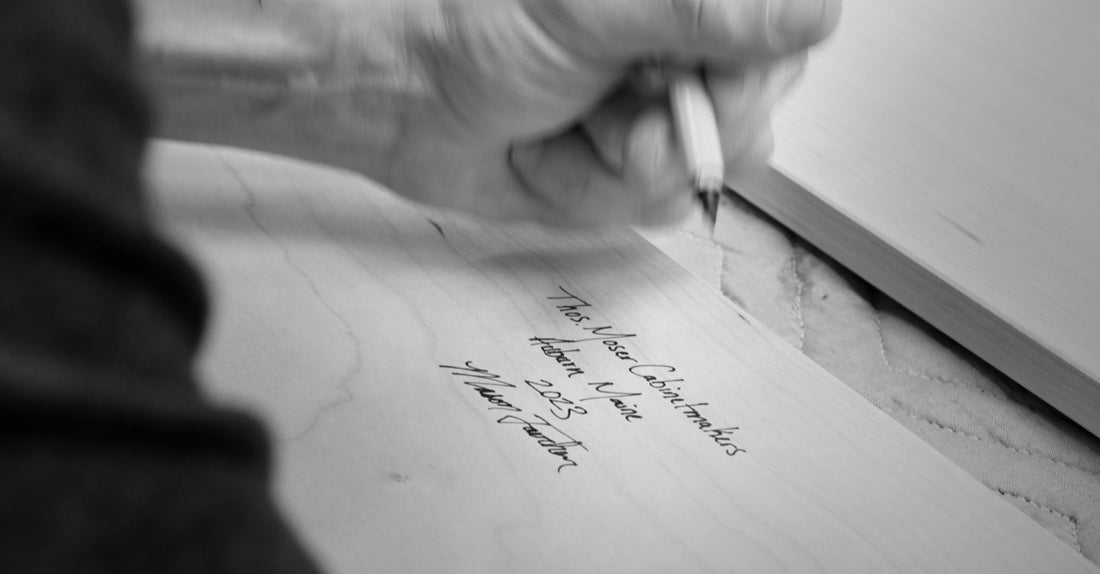 Thos. Moser Cabinetmakers
Auburn Maine
2023